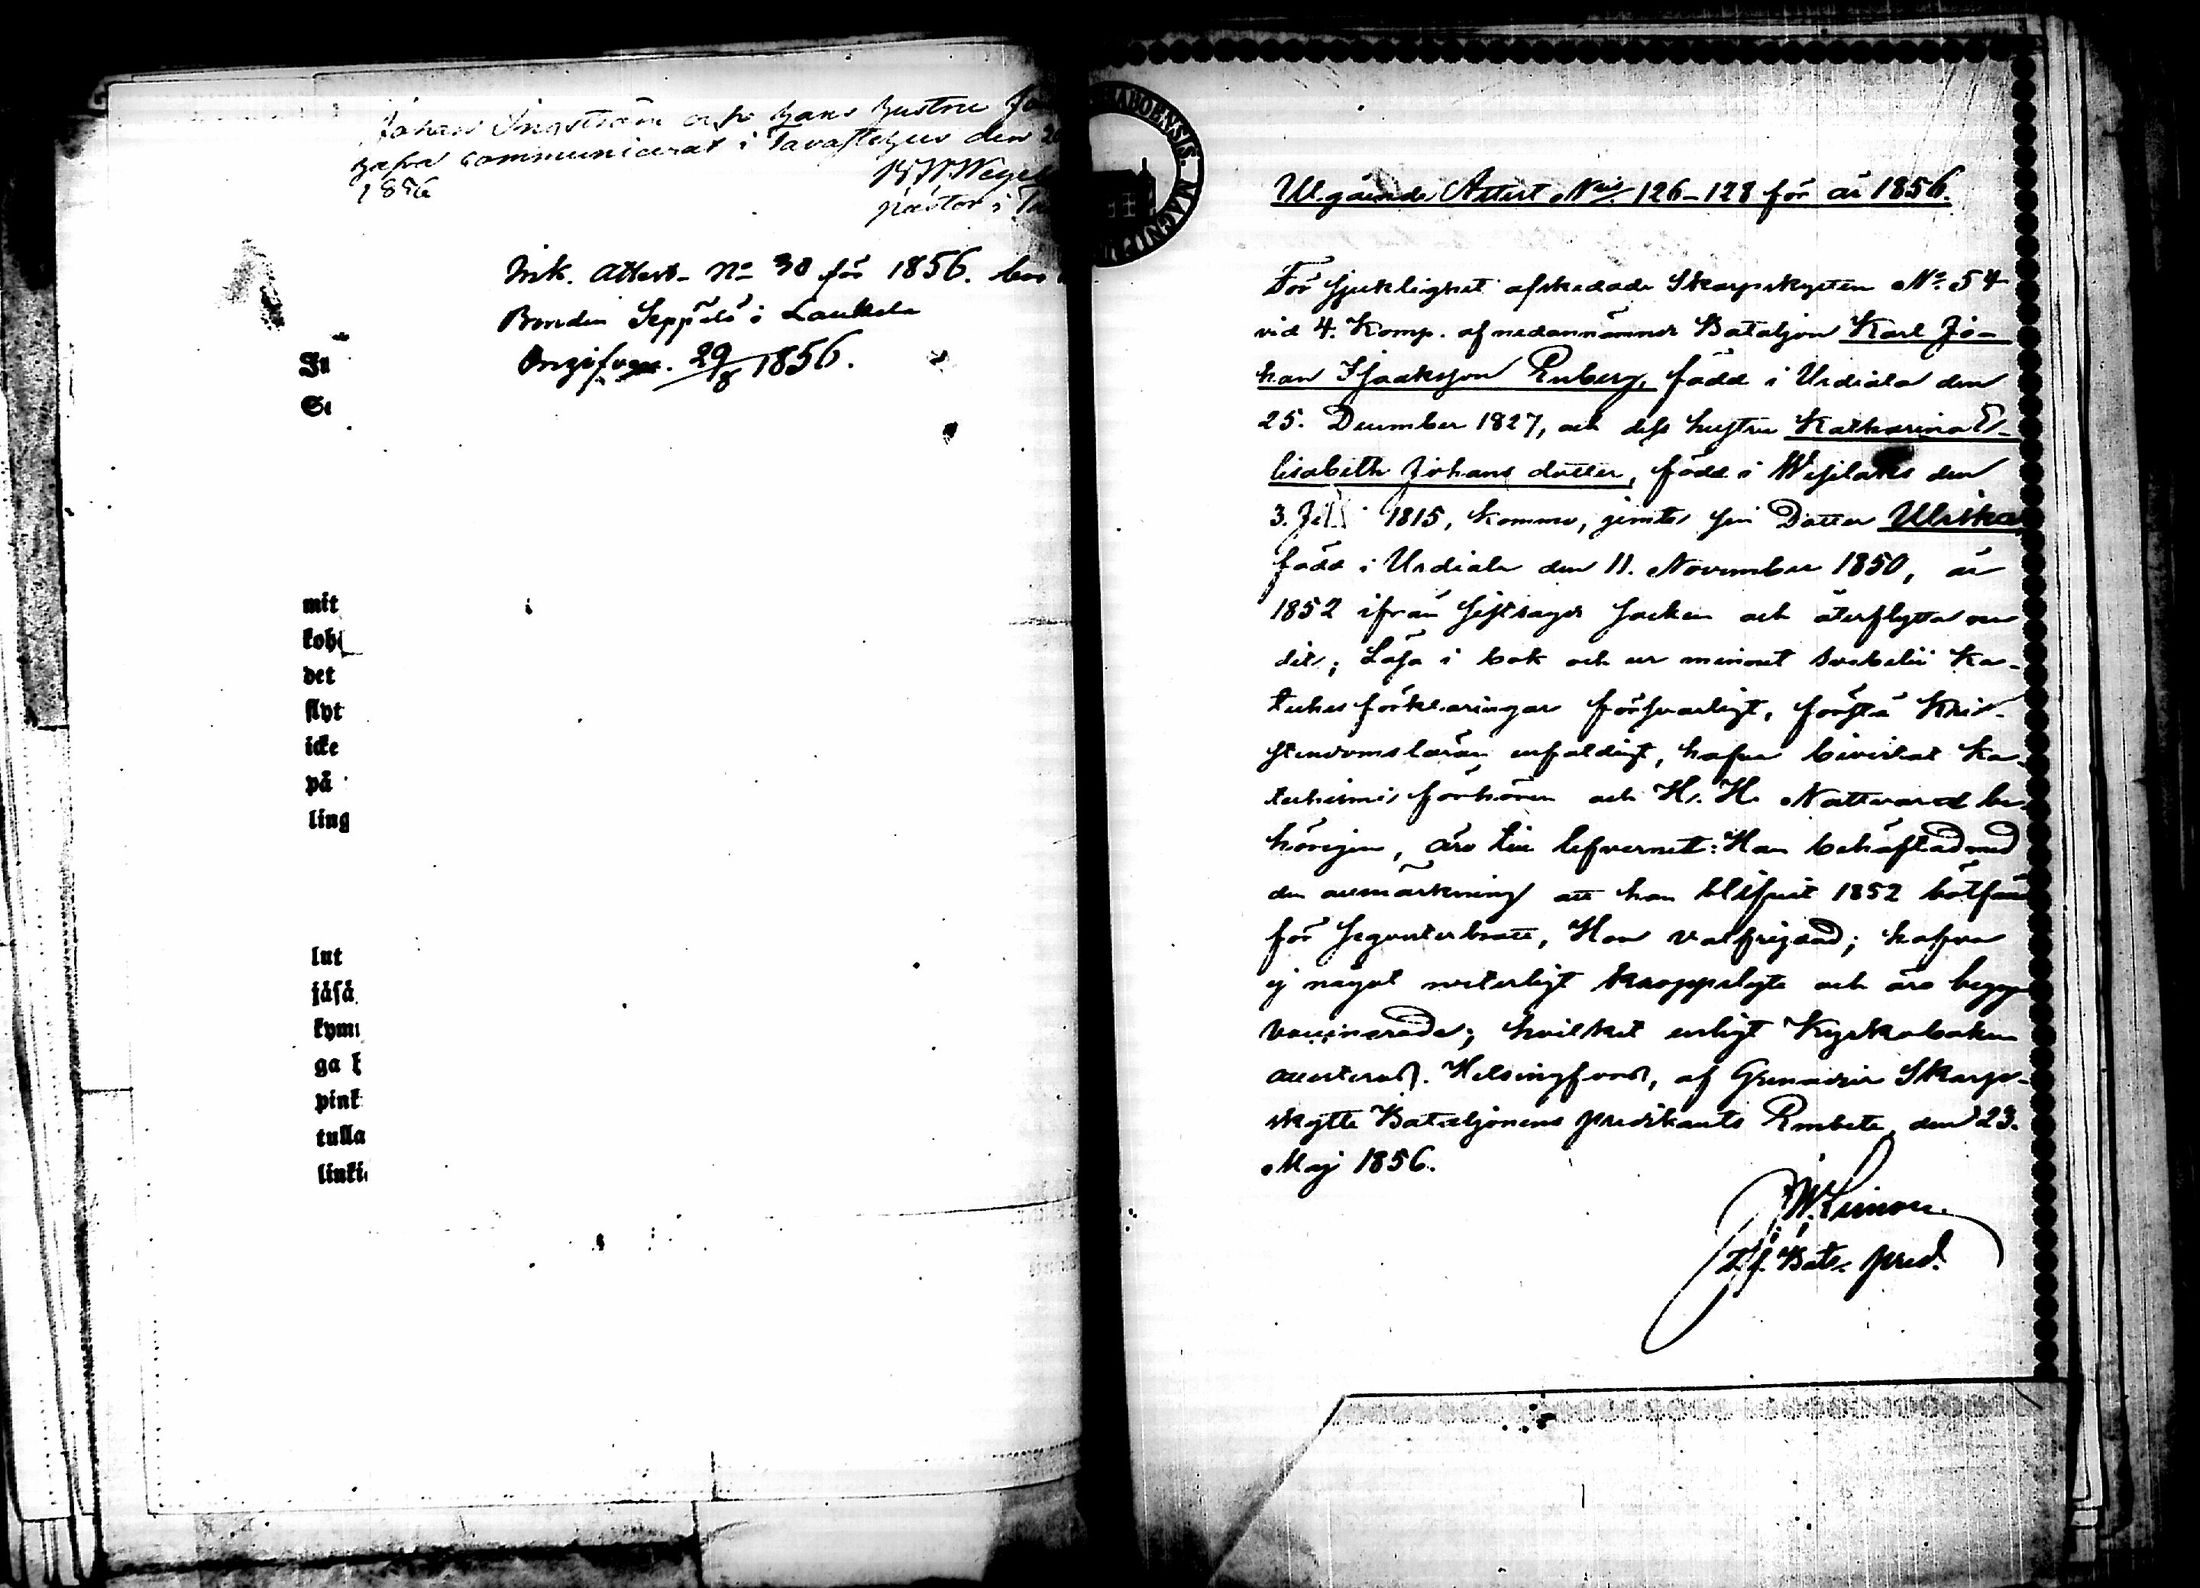 Johan Ingström och hans hustru
hafva communicerat i Tavastehus den
1856
pastor i
Ink. Attest No 30 för 1856.
Bonden Seppälä i Laukela
Ongifven. 29/8 1856.
mit
det
flyt
icke
på
ling
lut
jäsä
kym
ga
pink
tulla
linki
ABOENSIS. MAGNI
Utgående Attest Nris 126–128 för år 1856.
För sjuklighet afskedade Skarpskytten No. 54
vid 4. Komp. af nedannämnde Bataljon Karl Jo-
han Isaaksson Enberg, född i Urdiala den
25. December 1827, och dess hustru Katharina E-
lisabeth Johans dotter, född i Wesilaks den
3. 1815, komme, jemte sin Dotter Ulrika
född i Urdiala den 11. November 1850, år
1852 ifrån sistsagde Socken och återflytta nu
dit; Läsa i bok och ur minnet Svebelii Ka-
teches förklaringar försvarligt, förstå Kri-
stendomsläran enfaldigt, hafva bevistat Ka-
techismi förhören och H. H. Nattvard be-
hörigen, äro till lefvernet: Han behäftad med
den anmärkning att han blifvit 1852 bötfäld
för Seqvesterbrott, Hon välfrejdad; hafva
ej något veterligt kroppslyte och äro begge
vaccinerade; hvilket enligt Kyrkoboken
attesteras. Helsingfors, af Grenadier Skarp-
skytte Bataljonens predikants Embete, den 23.
Maj 1856.
T.f. Bats. pred.